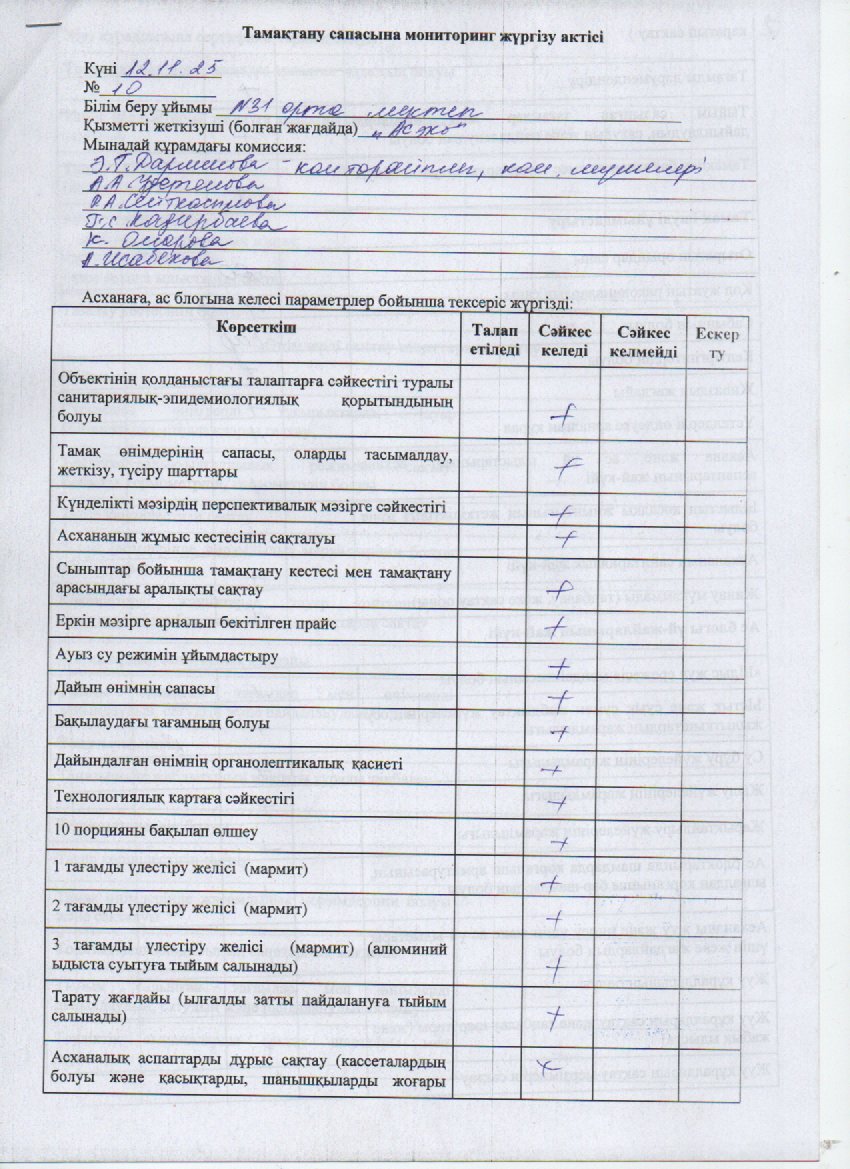 Тамақтану сапасына мониторинг жүргізу актісі
Күні 12.11.25
№ 10
Білім беру ұйымы N31 орта мектеп
Қызметті жеткізуші (болған жағдайда) „Асэко"
Мынадай құрамдағы комиссия:
Э.Т.Дарменова - ком төрайымы, ком. мүшелері
А.А Уретенова
Р.А.Сейтқасымова
Г.С Кадирбаева
К. Омарова
А.Исабекова
Асханаға, ас блогына келесі параметрлер бойынша тексеріс жүргізді:
Көрсеткіш Талап Сәйкес Сәйкес Ескер
етіледі келеді келмейді ту
Объектінің қолданыстағы талаптарға сәйкестігі туралы
санитариялық-эпидемиологиялық қорытындының
болуы +
Тамақ өнімдерінің сапасы, оларды тасымалдау,
жеткізу, түсіру шарттары +
Күнделікті мәзірдің перспективалық мәзірге сәйкестігі +
Асхананың жұмыс кестесінің сақталуы +
Сыныптар бойынша тамақтану кестесі мен тамақтану
арасындағы аралықты сақтау +
Еркін мәзірге арналып бекітілген прайс +
Ауыз су режимін ұйымдастыру +
Дайын өнімнің сапасы +
Бақылаудағы тағамның болуы +
Дайындалған өнімнің органолептикалық қасиеті +
Технологиялық картаға сәйкестігі +
10 порцияны бақылап өлшеу +
1 тағамды үлестіру желісі (мармит) +
2 тағамды үлестіру желісі (мармит) +
3 тағамды үлестіру желісі (мармит) (алюминий
ыдыста суытуға тыйым салынады) +
Тарату жағдайы (ылғалды затты пайдалануға тыйым
салынады) +
Асханалық аспаптарды дұрыс сақтау (кассеталардың
болуы және қасықтарды, шанышқыларды жоғары +